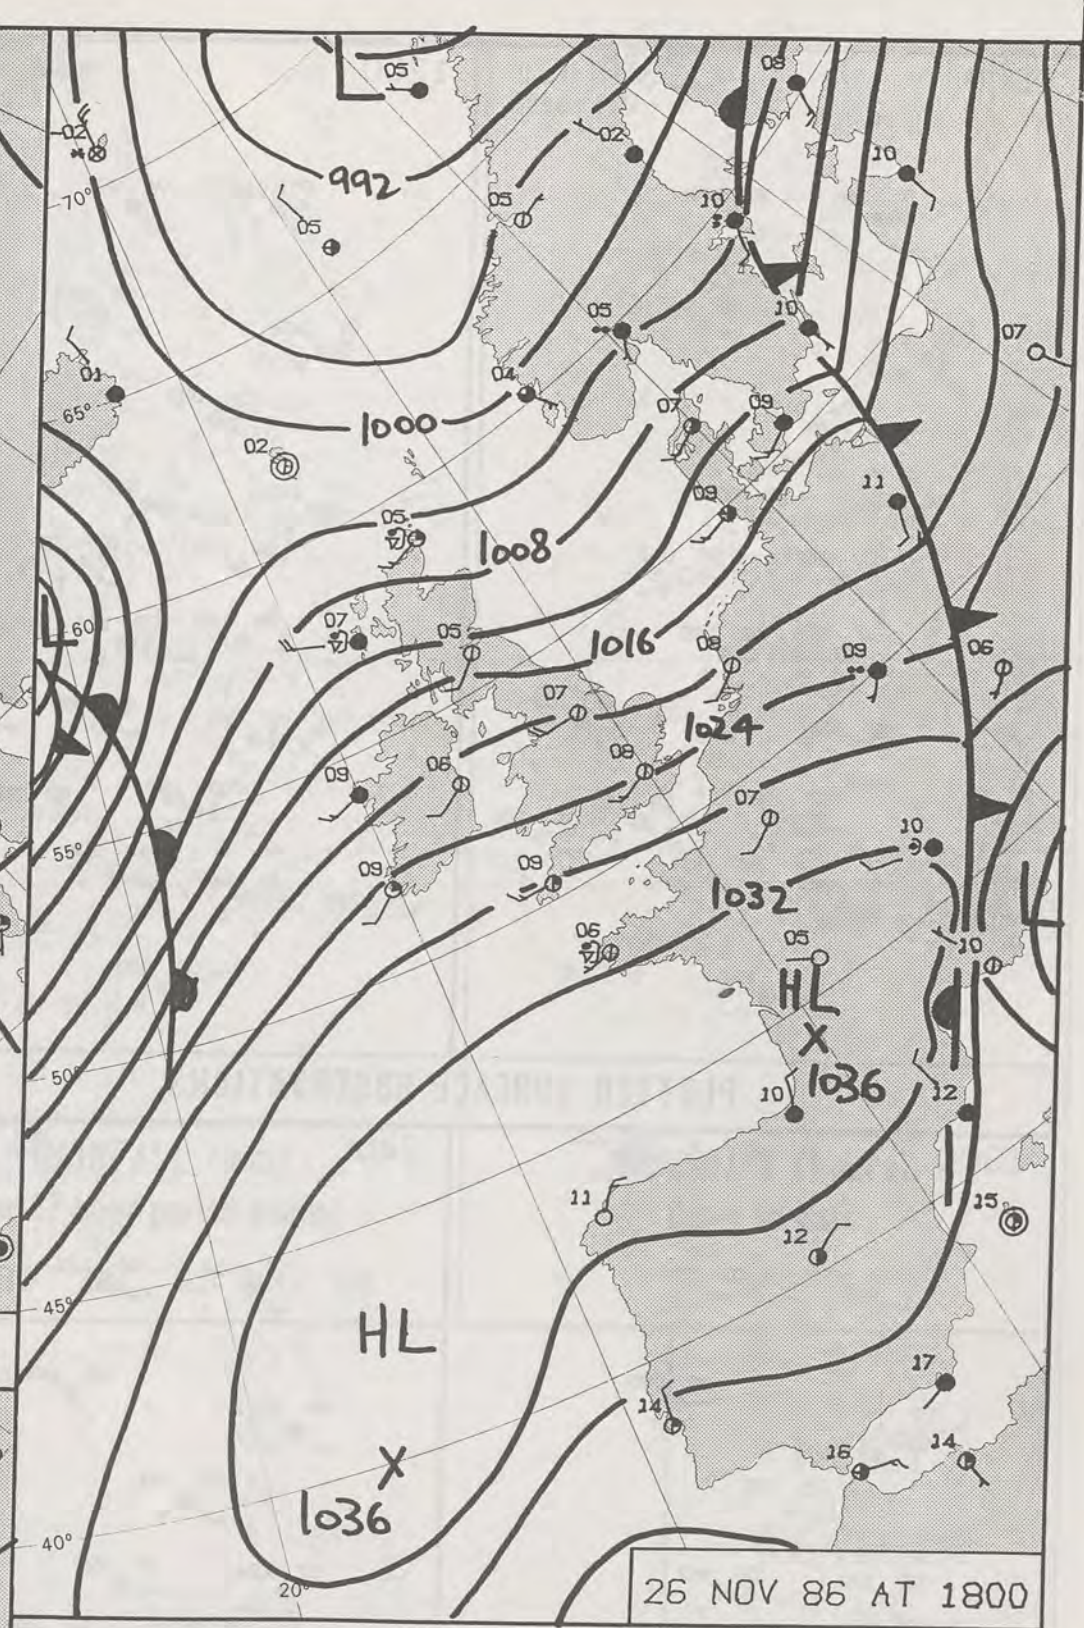 L
05
08
02
02
10
992
70°
05
05
10
05
10
07
01
04
65°
1000
07
09
02
11
09
05
1008
L
60
07
05
1016
08
09
06
07
1024
09
06
08
07
55°
10
09
09
1032
L
06
05
10
HL
X
50°
1036
10
12
11
12
15
45°
HL
17
14
X
16
14
1036
40°
20°
26 NOV 86 AT 1800